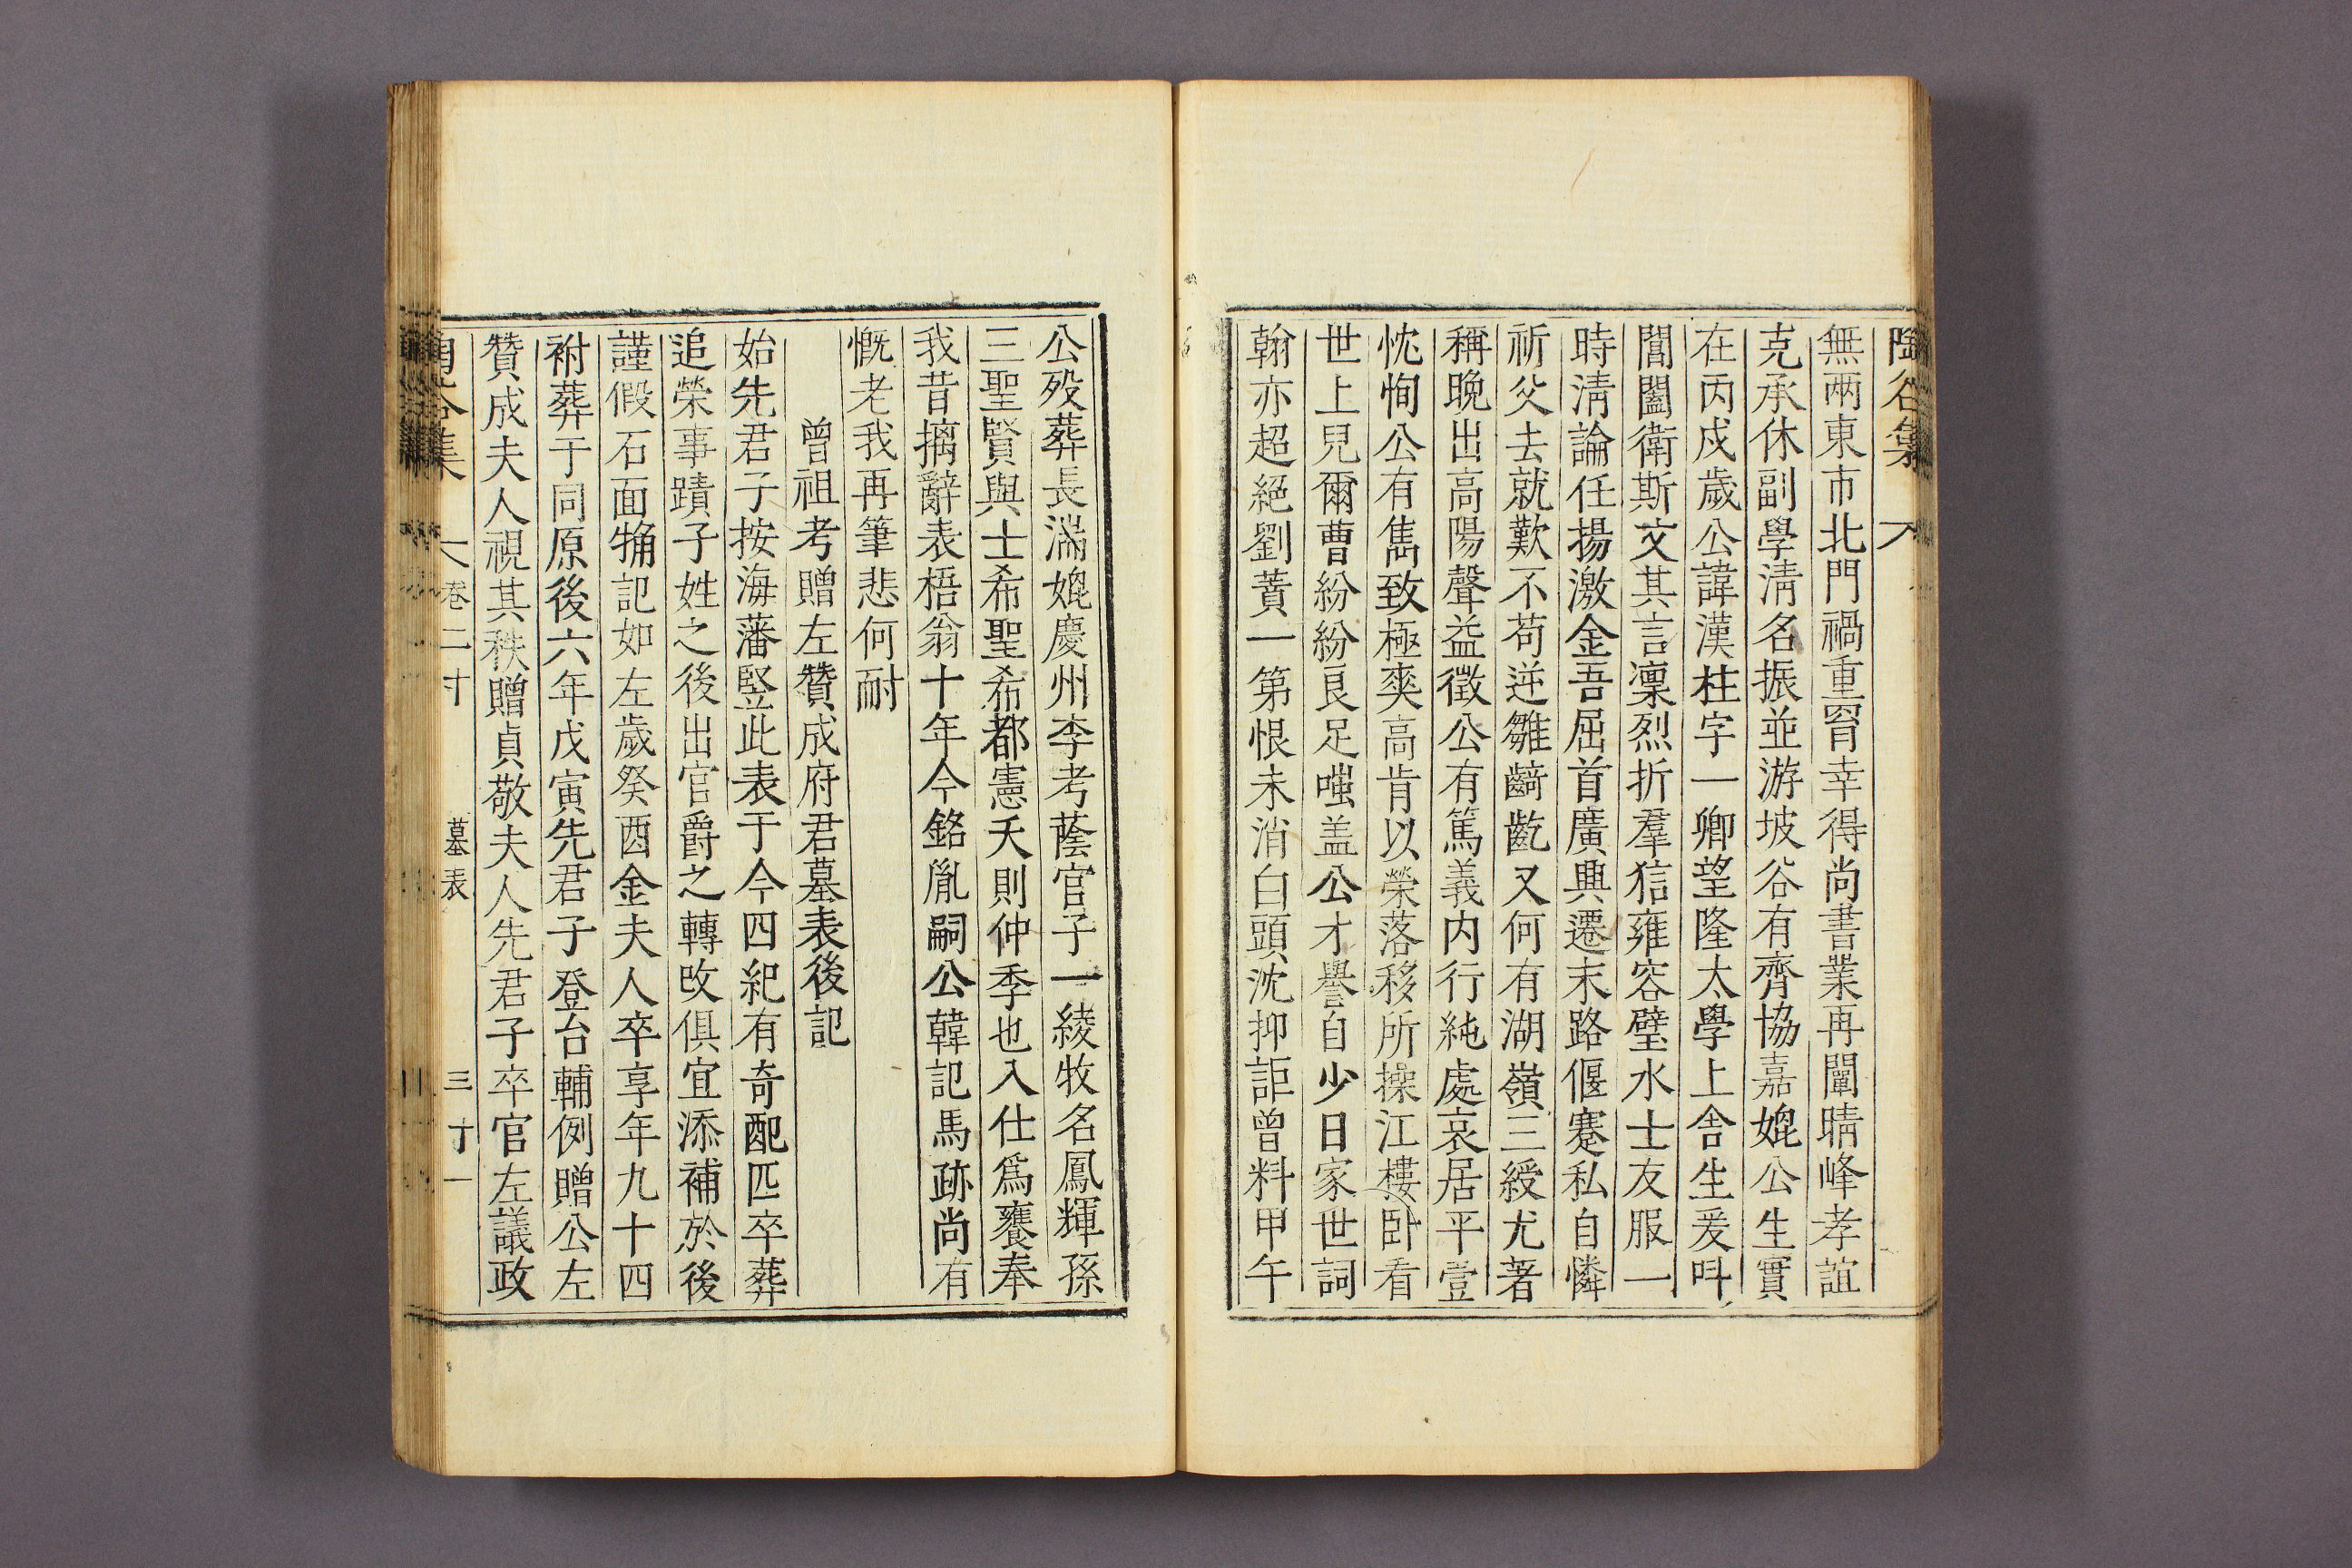 陶谷集
無兩東市北門禍重胥幸得尚書業再闡晴峰孝誼
克承休副學淸名振並游坡谷有齊協嘉媲公生實
在丙戍歲公諱漢柱字一卿望隆太學上舍生爰呌
閶闔衛斯文其言凜烈折羣狺雍容璧水士友服一
時淸論任揚激金吾屈首廣興遷末路偃蹇私自憐
祈父去就歎不苟逆雛齮齕又何有湖嶺三綬尤著
稱晩出高陽聲益徵公有篤義內行純處哀居平壹
忱恂公有雋致極爽高肯以榮落移所操江樓卧看
世上兒爾曹紛紛良足嗤盖公才譽自少日家世詞
翰亦超絕劉蕡一第恨未消白頭沈抑詎曾料甲午
公殁葬長湍媲慶州李考蔭官子一綾牧名鳳輝孫
三聖賢與士希聖希都憲夭則仲季也入仕爲饔奉
我昔摛辭表梧翁十年今銘胤嗣公韓記馬跡尚有
慨老我再筆悲何耐
曾祖考贈左贊成府君墓表後記
始先君子按海藩竪此表于今四紀有奇配匹卒葬
追榮事蹟子姓之後出官爵之轉改俱宜添補於後
謹假石面觕記如左歲癸酉金夫人卒享年九十四
祔葬于同原後六年戊寅先君子登台輔例贈公左
贊成夫人視其秩贈貞敬夫人先君子卒官左議政
卷二十 墓表 三十一